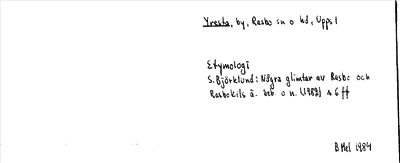 Yresta, by, Rasbo sn o hd, Uppl
Etymologi
S. Björklund: Några glimtar av Rasbo och
Rasbokils ä. beb. o n. (1982) s 6 ff
B Mel 1984